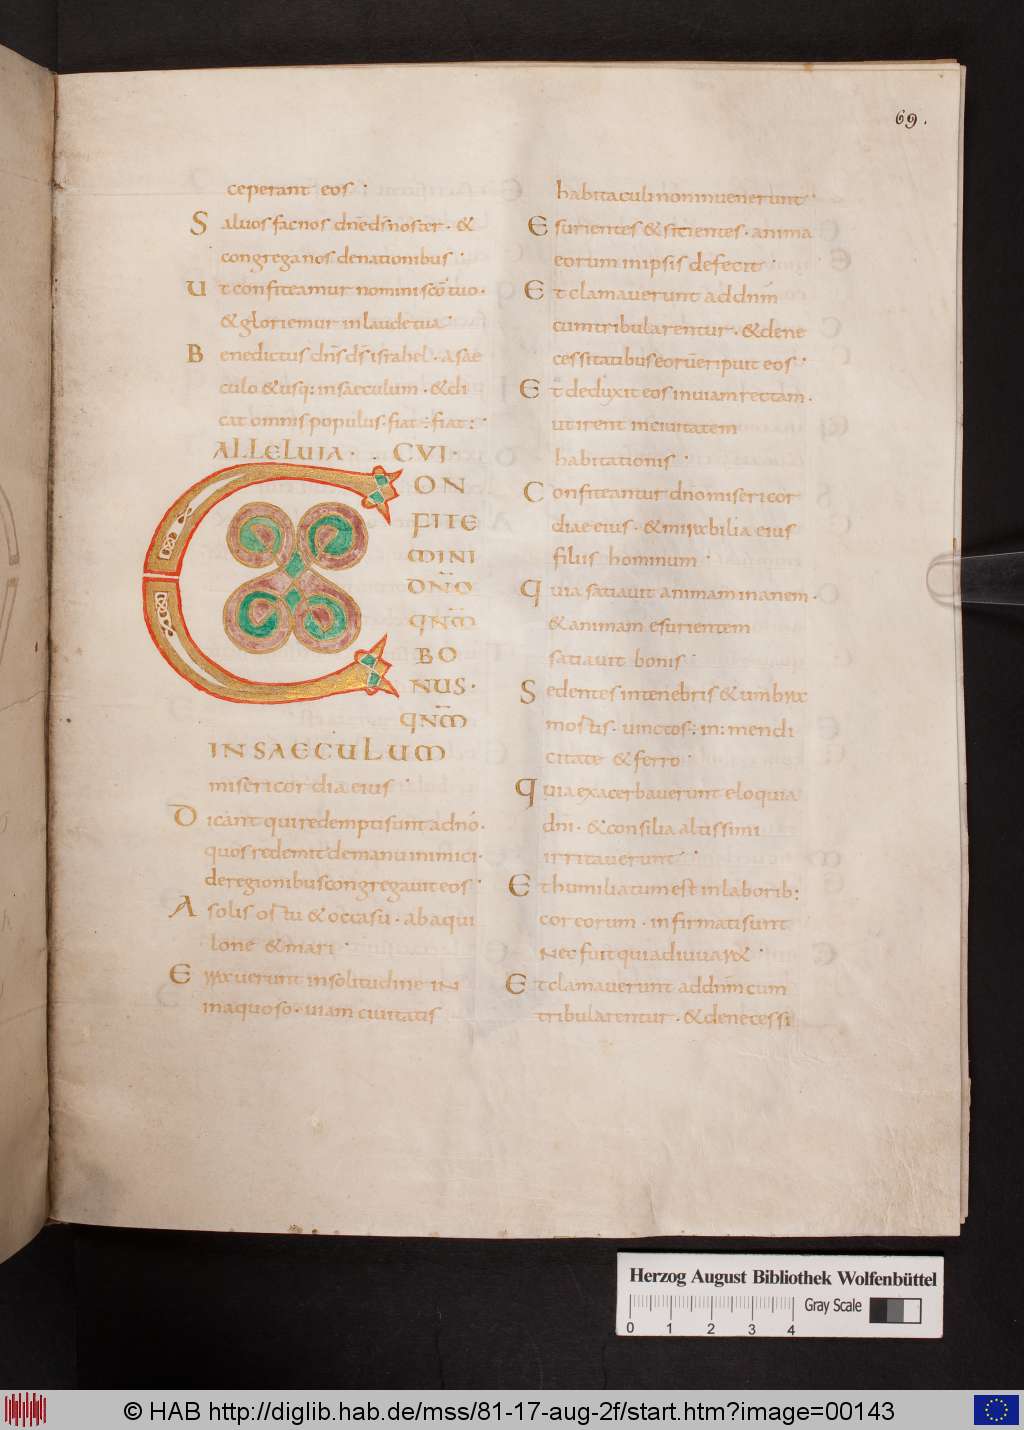 69.
ceperant eos
Saluos fac nos dn̄e ds̄ noster · &
congrega nos de nationibus
Ut confiteamur nomini sc̄o tuo ·
& gloriemur in laude tua
Benedictus dn̄s ds̄ israhel · a sae
culo & usq: in saeculum · & di
cat omnis populus · fiat : fiat :
ALLELUIA · CVI ·
CON
FITE
MINI
DN̄O
QNM̄
BO
NUS ·
QNM̄
IN SAECULUM
misericordia eius
Dicant qui redempti sunt a dn̄o ·
quos redemit de manu inimici ·
de regionibus congregauit eos
A solis ortu & occasu · ab aqui
lone & mari
Erraxuerunt in solitudine IN
inaquoso · uiam ciuitatis
habitaculi non inuenerunt
Esurientes & sitientes · anima
eorum in ipsis defecit
Et clamauerunt ad dnm̄
cum tribularentur · & de ne
cessitatibus eorū eripuit eos
Et deduxit eos in uiam rectam ·
ut irent in ciuitatem
habitationis
Confiteantur dn̄o misericor
diae eius · & mirabilia eius
filiis hominum
Quia satiauit animam inanem ·
& animam esurientem
satiauit bonis
Sedentes in tenebris & umbra
mortis · uinctos : in : mendi
citate & ferro
Quia exacerbauerunt eloquia
dn̄i · & consilia altissimi
irritauerunt
Et humiliatum est in laborib:
cor eorum · infirmati sunt
Nec fuit qui adiuuar&
Et clamauerunt ad dnm̄ cum
tribularentur · & de necessi
Herzog August Bibliothek Wolfenbüttel
Gray Scale
0 1 2 3 4
© HAB http://diglib.hab.de/mss/81-17-aug-2f/start.htm?image=00143